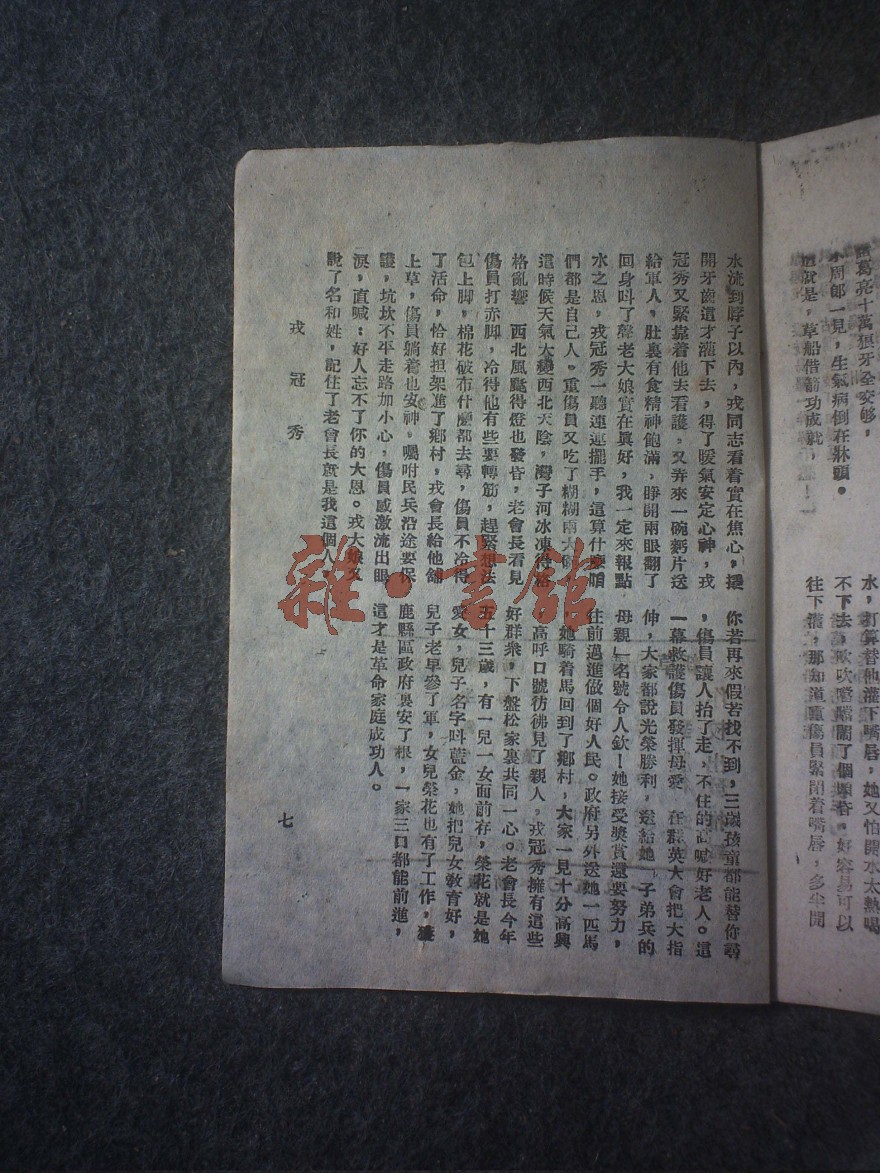 水流到脖子以內，戎同志看着實在焦心，撬
開牙齒這才灌下去，得了暖氣安定心神，戎
冠秀又緊靠着他去看護，又弄來一碗麪片送
給軍人，肚裏有食精神飽滿，睜開兩眼翻了
回身叫了聲老大娘實在眞好，我一定來報點
水之恩，戎冠秀一聽連連擺手，這算什麼咱
們都是自己人。重傷員又吃了糊糊兩大碗，
這時候天氣大變西北天陰，灣子河冰凍得格
格亂響　西北風颳得燈也發昏，老會長看見
傷員打赤脚，冷得他有些要轉筋，趕緊想法
包上脚，棉花破布什麼都去尋，傷員不冷得
了活命，恰好担架進了鄉村，戎會長給他舖
上草，傷員躺着也安神，囑咐民兵沿途要保
護，坑坎不平走路加小心，傷員感激流出眼
淚，直喊：好人忘不了你的大恩。戎大娘又
說了名和姓，記住了老會長就是我這個人，
你若再來假若找不到，三歲孩童都能替你尋
，傷員讓人抬了走，不住的高喊好老人。這
一幕救護傷員發揮母愛　在群英大會把大指
伸，大家都說光榮勝利，送給她「子弟兵的
母親」名號令人欽！她接受獎賞還要努力，
往前邁進做個好人民。政府另外送她一匹馬
，她騎着馬回到了鄉村，大家一見十分高興
高呼口號彷彿見了親人，戎冠秀擁有這些
好群衆，下盤松家裏共同一心。老會長今年
五十三歲，有一兒一女面前存，榮花就是她
愛女，兒子名字叫藍金，她把兒女教育好，
兒子老早參了軍，女兒榮花也有了工作，獲
鹿縣區政府裏安了根，一家三口都能前進，
這才是革命家庭成功人。
戎冠秀
七
亮十萬狼牙全交够，
周郎一見，生氣病倒在牀頭。
這就是，草船借箭功成就，
水，打算替他灌下嘴唇，她又怕開水太熱喝
不下去，吹吹嚐嚐鬧了個頭昏。好容易可以
往下灌，那知道重傷員緊閉着嘴唇，多半開
雜·書館